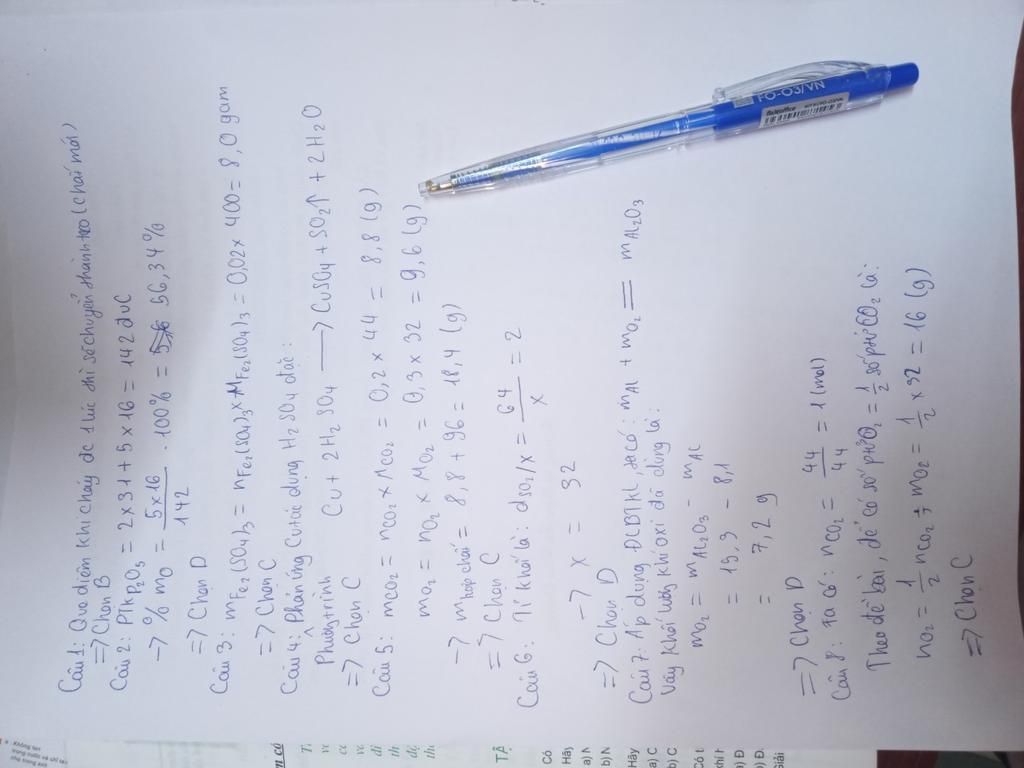 Câu 1: Que diêm khi cháy đc 1 lúc thì sẽ chuyển thành tro (chất mới)
=> Chọn B
Câu 2: PTK P2O5 = 2 x 31 + 5 x 16 = 142 đvC
-> % mO = 5x16/142 . 100% = 56,34%
=> Chọn D
Câu 3: mFe2(SO4)3 = nFe2(SO4)3 x MFe2(SO4)3 = 0,02 x 400 = 8,0 gam
=> Chọn C
Câu 4: Phản ứng Cu tác dụng H2SO4 đặc:
Phương trình Cu + 2H2SO4 -> CuSO4 + SO2↑ + 2H2O
=> Chọn C
Câu 5: mCO2 = nCO2 x MCO2 = 0,2 x 44 = 8,8 (g)
mO2 = nO2 x MO2 = 0,3 x 32 = 9,6 (g)
-> mhợp chất = 8,8 + 96 = 18,4 (g)
=> Chọn C
Câu 6: Tỉ khối là: dSO2/x = 64/x = 2
-> x = 32
=> Chọn D
Câu 7: Áp dụng ĐLBTKL, ta có: mAl + mO2 = mAl2O3
Vậy khối lượng khí oxi đã dùng là:
mO2 = mAl2O3 - mAl
= 15,3 - 8,1
= 7,2 g
=> Chọn D
Câu 8: Ta có: nCO2 = 44/44 = 1 (mol)
Theo đề bài, để có số ptử O2 = 1/2 số ptử CO2 là:
nO2 = 1/2 nCO2 -> mO2 = 1/2 x 32 = 16 (g)
=> Chọn C
FO-03/VN
TẬ
Có
Hãy
a) N
b) N
Hãy
a) C
b) C
Có t
khí h
a) Đ
b) Đ.
Giải